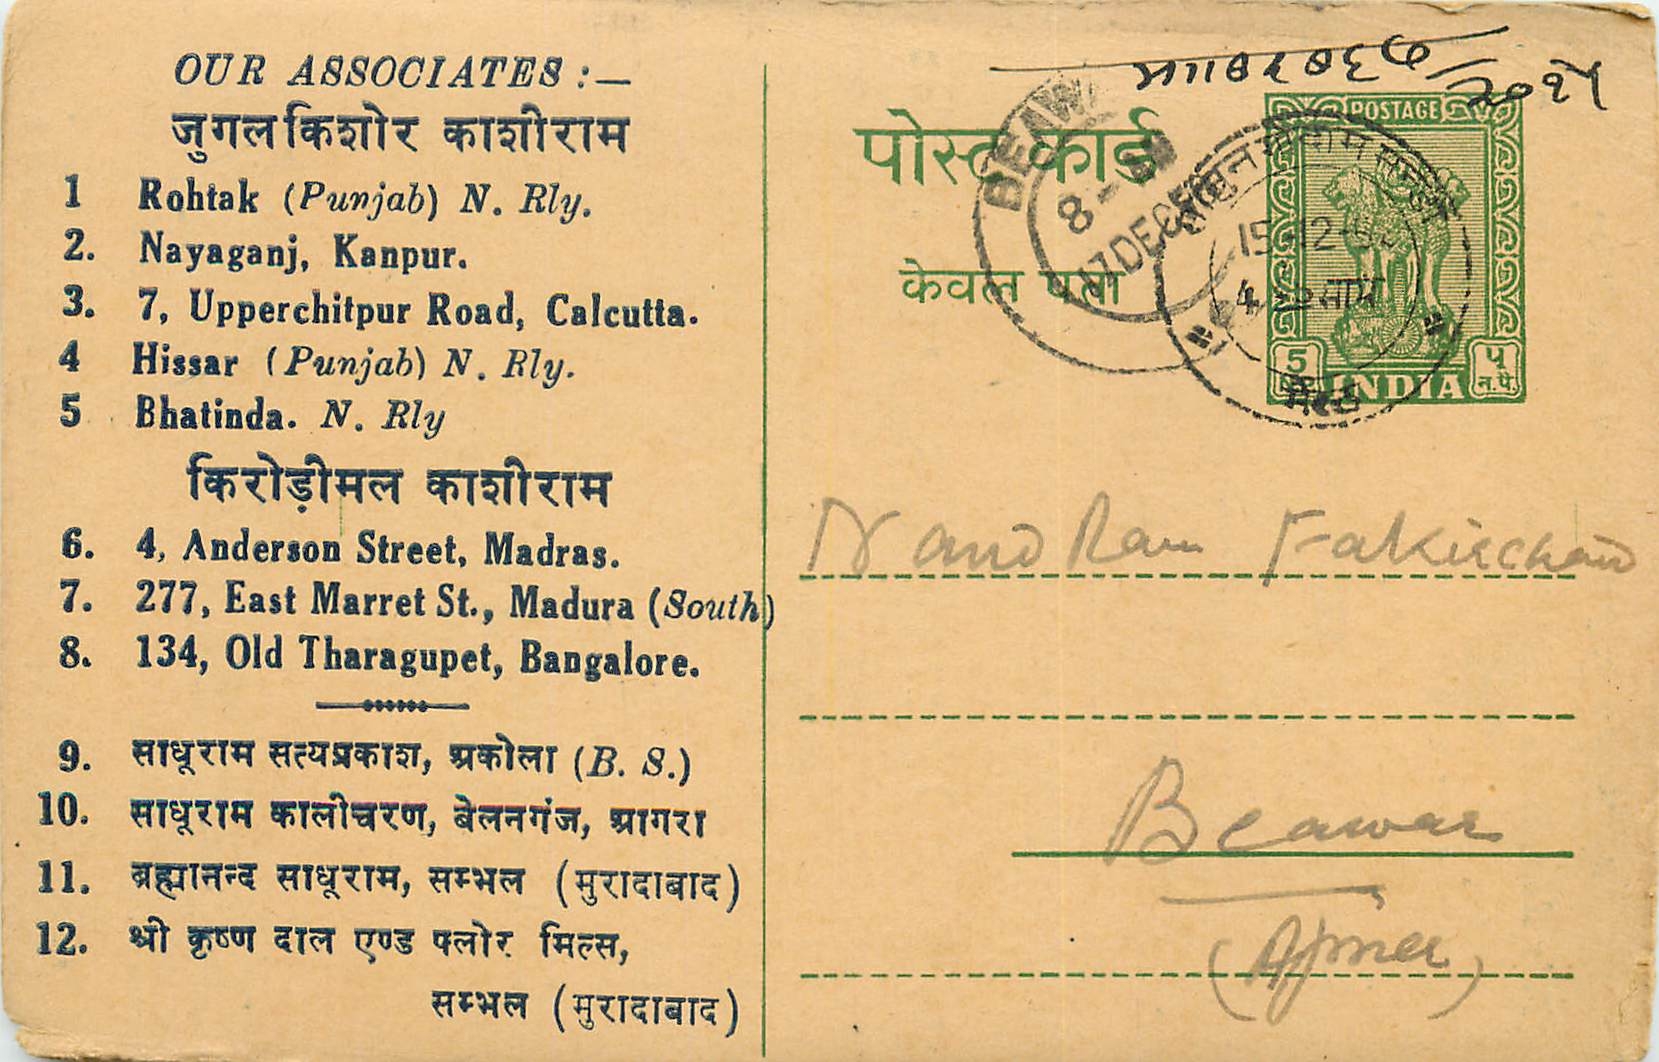 OUR ASSOCIATES :—
जुगलकिशोर काशीराम
1 Rohtak (Punjab) N. Rly.
2. Nayaganj, Kanpur.
3. 7, Upperchitpur Road, Calcutta.
4 Hissar (Punjab) N. Rly.
5 Bhatinda. N. Rly
किरोड़ीमल काशीराम
6. 4, Anderson Street, Madras.
7. 277, East Marret St., Madura (South)
8. 134, Old Tharagupet, Bangalore.
9. साधूराम सत्यप्रकाश, अकोला (B. S.)
10. साधूराम कालीचरण, बेलनगंज, आगरा
11. ब्रह्मानन्द साधूराम, सम्भल (मुरादाबाद)
12. श्री कृष्ण दाल एण्ड फ्लोर मिल्स,
सम्भल (मुरादाबाद)
पोस्ट कार्ड
केवल पता
POSTAGE
5 INDIA ५
न.पै.
BEAWAR
17 DEC
15-12-5
मेरठ
Nand Ram Fakirchand
Beawar
(Ajmer)